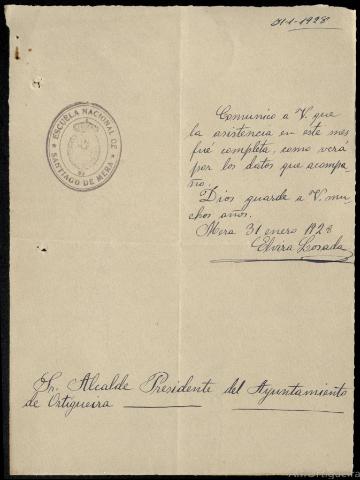 31-1-1928
ESCUELA NACIONAL DE
SANTIAGO DE MERA
Comunico a V. que
la asistencia en este mes
fué completa, como verá
por los datos que acompa
ño.
Dios guarde a V. mu-
chos años.
Mera 31 enero 1928
Elvira Losada
Sr. Alcalde Presidente del Ayuntamiento
de Ortigueira